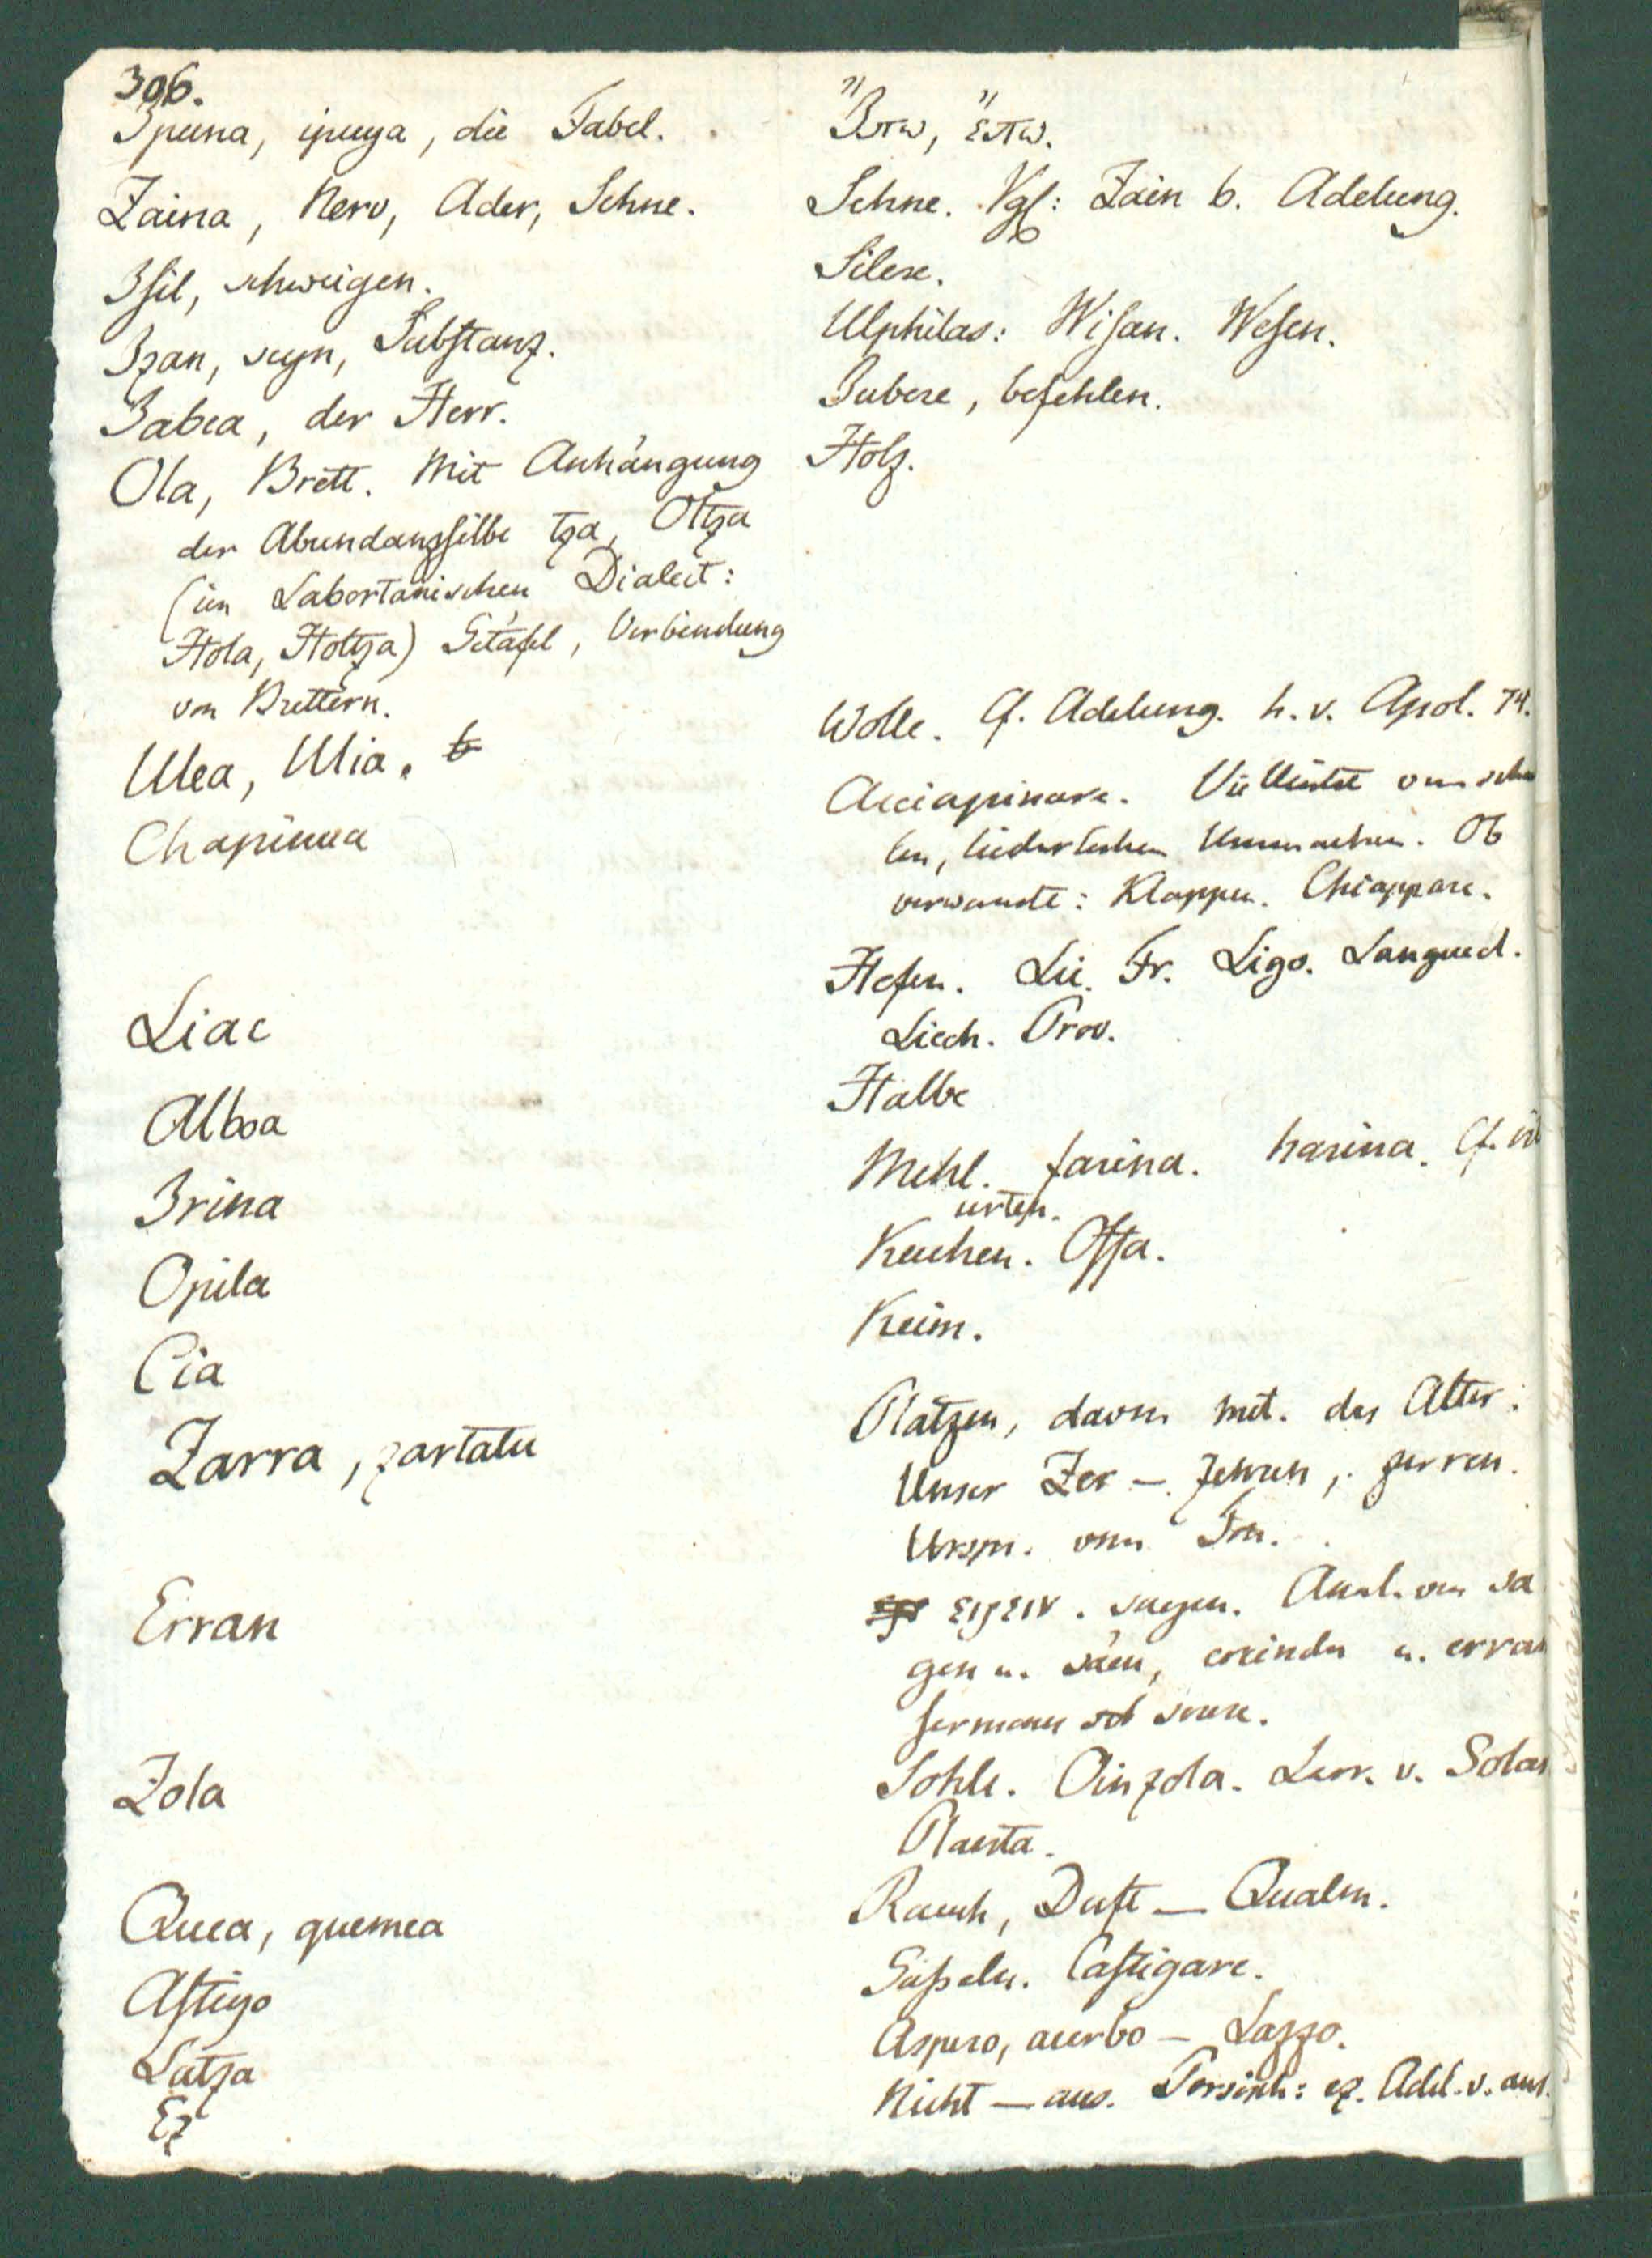 306.
Ipuina, ipuya, die Fabel.
Ἴπω, ἔπω.
Zaina, Nerv, Ader, Sehne.
Sehne. Vgl: Zain b. Adelung.
Isil, schweigen.
Silere.
Izan, seyn, Substanz.
Ulphilas: Wisan. Wesen.
Jabea, der Herr.
Jubere, befehlen.
Ola, Brett. Mit Anhängung
Holz.
der Abundanzsilbe tza, Oltza
(im Labortanischen Dialect:
Hola, Holtza) Getäfel, Verbindung
von Brettern.
Ulea, Ulia.
Wolle. Cf. Adelung. h. v. Apol. 74.
Chapinua
Acciapinare. Vielleicht von
len, liederlichen. Ob
verwandt: Klappen. Chiappare.
Liac
Hefen. Lie. Fr. Ligo. Langued.
Liech. Prov.
Alboa
Halbe
Irina
Mehl. farina. harina. Cf.
urten.
Opila
Kuchen. Offa.
Cia
Keim.
Zarra, zartatu
Platzen, davon mit. das Alter.
Unser Zer — zehren, zerren.
Urspr. vom Ton.
Erran
ειρειν. sagen. Anal. von sa
gen u. säen, ereindu u. erran
sermonem serere.
Zola
Sohle. Oinzola. Larr. v. Solar
Planta.
Quea, quemea
Rauch, Duft — Qualm.
Astigo
Geißeln. Castigare.
Latza
Aspero, acerbo — Lazzo.
Ez
Nicht — aus. Persisch: ez. Adel. v. aus.